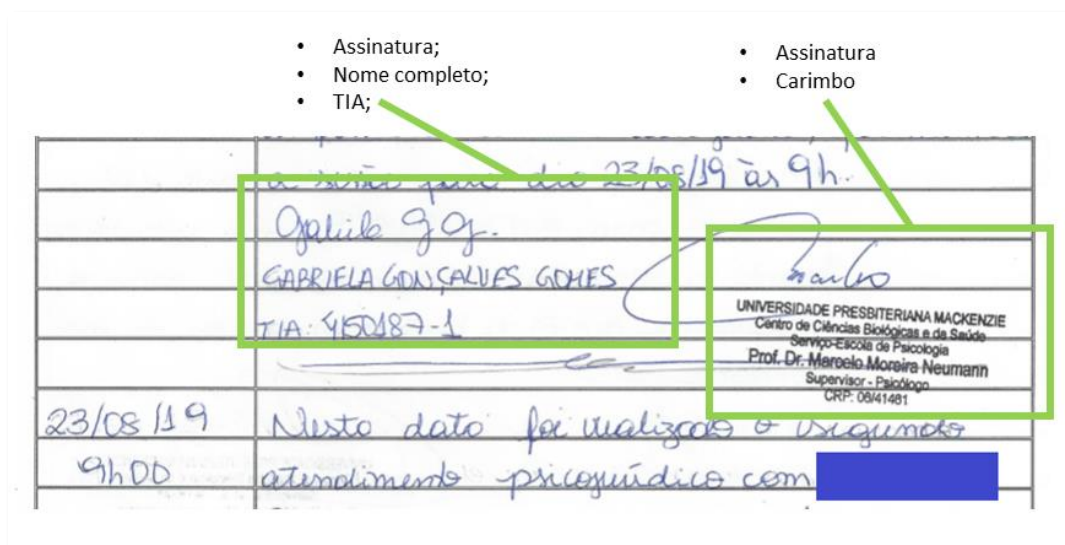 • Assinatura;
• Nome completo;
• TIA;
• Assinatura
• Carimbo
a sessão para dia 23/08/19 às 9h.
Gabriela G G.
GABRIELA GONÇALVES GOMES
TIA: 4150187-1
UNIVERSIDADE PRESBITERIANA MACKENZIE
Centro de Ciências Biológicas e da Saúde
Serviço-Escola de Psicologia
Prof. Dr. Marcelo Moreira Neumann
Supervisor - Psicólogo
CRP: 06/41461
23/08/19 Nesta data foi realizado o segundo
9h00 atendimento psicojurídico com